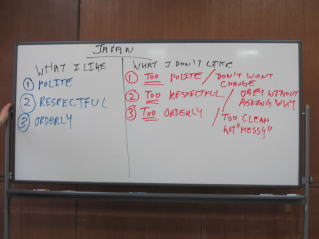 JAPAN
WHAT I LIKE
① POLITE
② RESPECTFUL
③ ORDERLY
WHAT I DON'T LIKE
① TOO POLITE / DON'T WANT
CHANGE
② TOO RESPECTFUL / OBEY WITHOUT
ASKING WHY
③ TOO ORDERLY / TOO CLEAN
"MESSY"